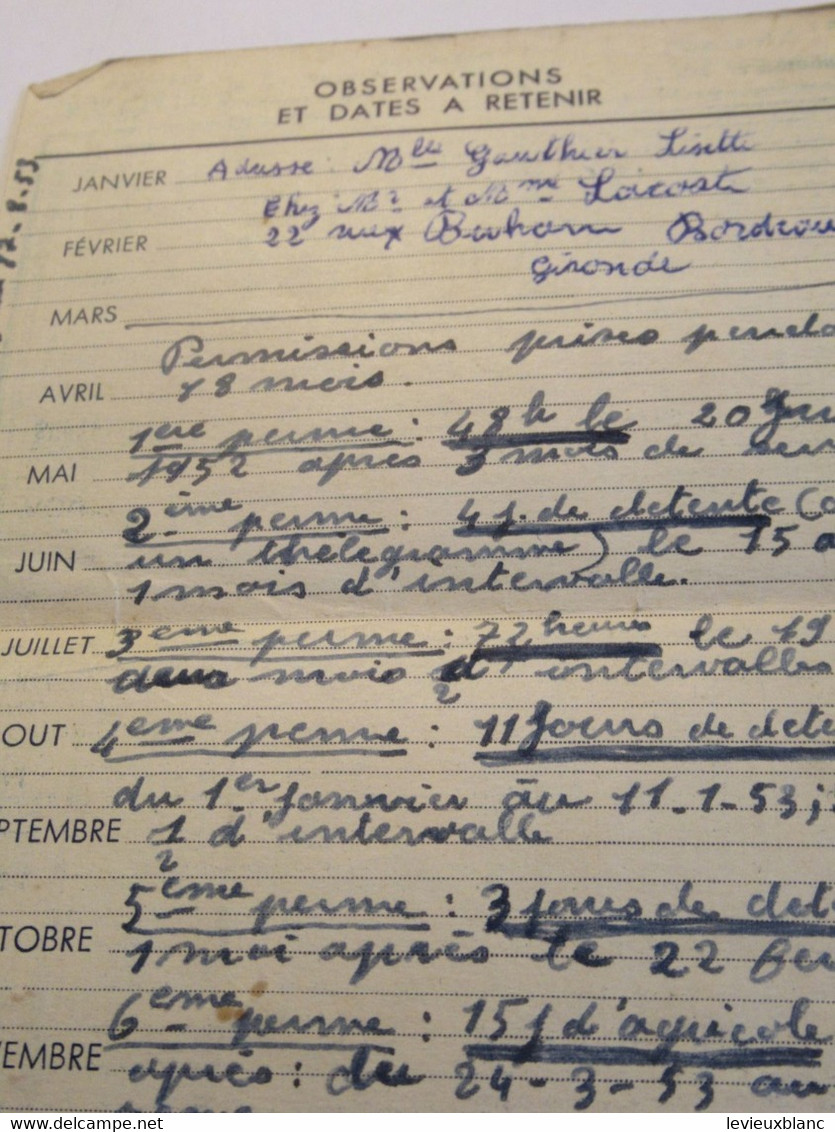 OBSERVATIONS
ET DATES A RETENIR
12.8.53
JANVIER Adresse: Mlle Gauthier Lisette
Chez Mr et Mme Lacoste
FÉVRIER 22 Bordeau
Gironde
MARS
Permissions prises penda
AVRIL 18 mois.
1ère perme : 48h le 20 Jui
MAI 1952 après 3 mois de ser
2ème perme : 4 j. de detente (a
JUIN un thelegramme) le 15 a
1 mois d'intervalle.
JUILLET 3ème perme : 72 heures le 19
deux mois d' intervalles
OUT 4ème perme : 11 jours de dete
du 1er janvier au 11-1-53;
PTEMBRE 1/2 d'intervalle
5ème perme : 3 jours de det
TOBRE 1 moi après le 22 fev
6ème perme : 15 j d'agricole
VEMBRE après : du 24-3-53 au
levieuxblanc